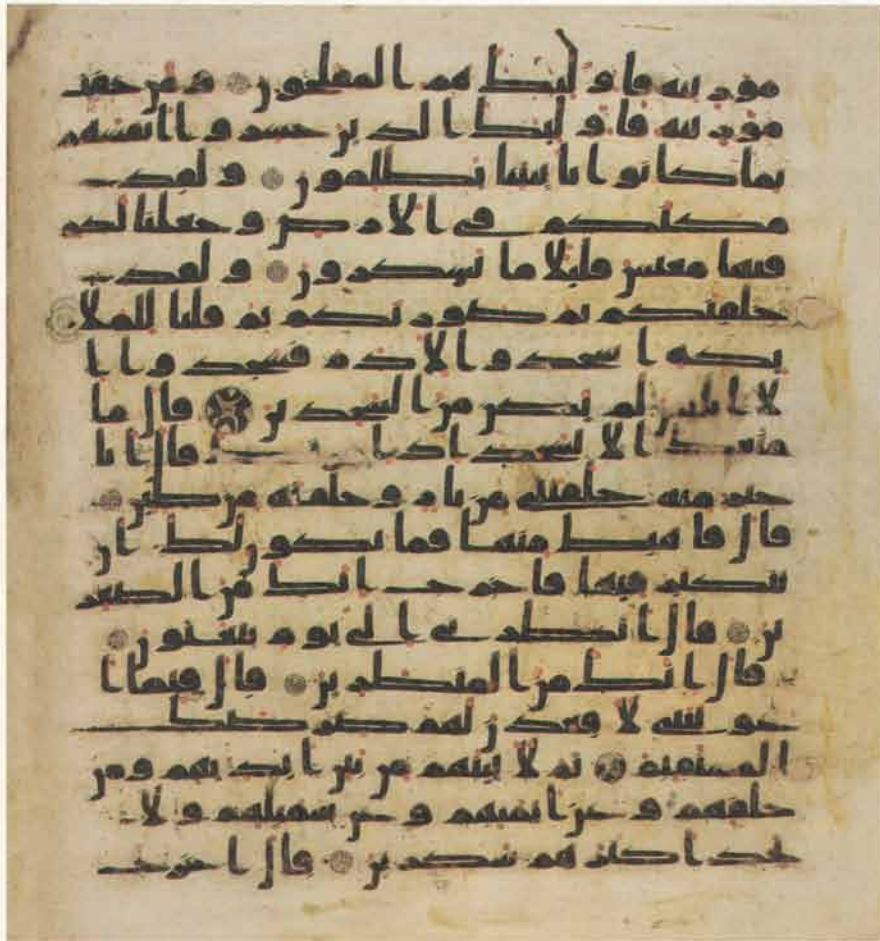 موزينه فاولئك هم المفلحون ومن خفت
موزينه فاولئك الذين خسروا انفسهم
بما كانوا بايتنا يظلمون ولقد
مكنكم في الارض وجعلنا لكم
فيها معيش قليلا ما تشكرون ولقد
خلقنكم ثم صورنكم ثم قلنا للملا
ئكة اسجدوا لادم فسجدوا ا
لا ابليس لم يكن من السجدين قال ما
منعك الا تسجد اذ قال انا
خير منه خلقتني من نار وخلقته من طين
قال فاهبط منها فما يكون لك ان
تتكبر فيها فاخرج انك من الصغر
ين قال انظرني الى يوم يبعثون
قال انك من المنظرين قال فبما ا
غويتني لاقعدن لهم صرطك
المستقيم ثم لاتينهم من بين ايديهم ومن
خلفهم وعن ايمنهم وعن شمئلهم ولا
تجد اكثرهم شكرين قال اخرج